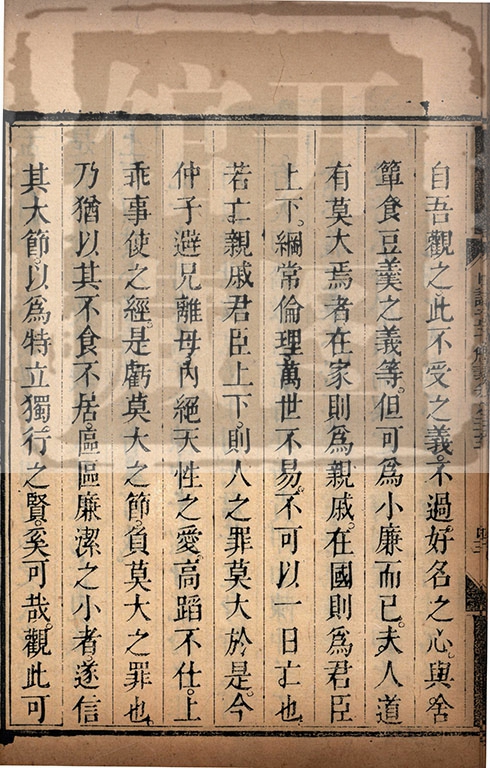 自吾觀之此不受之義不過好名之心與舍
簞食豆羹之義等但可為小廉而已夫人道
有莫大焉者在家則為親戚在國則為君臣
上下綱常倫理萬世不易不可以一日亡也
若亡親戚君臣上下則人之罪莫大於是今
仲子避兄離母內絕天性之愛高蹈不仕上
乖事使之經是虧莫大之節負莫大之罪也
乃猶以其不食不居區區廉潔之小者遂信
其大節以為特立獨行之賢奚可哉觀此可